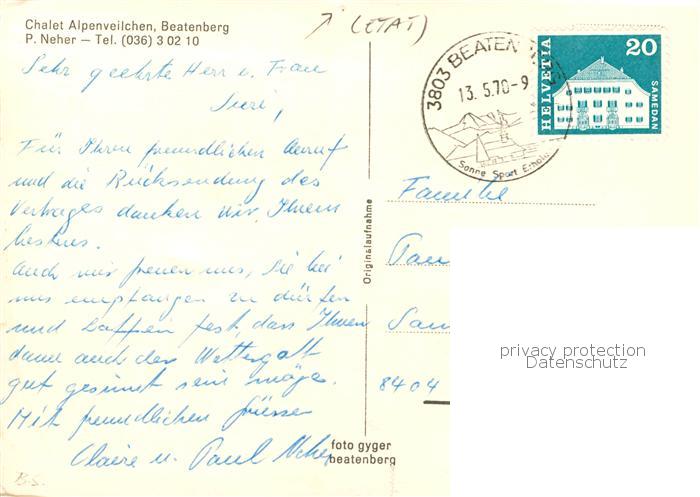 Chalet Alpenveilchen, Beatenberg
P. Neher – Tel. (036) 3 02 10
(ETAT)
Sehr geehrte Herr u. Frau
Suri,
Für Ihren freundlichen Anruf
und die Rücksendung des
Vertrages danken wir Ihnen
bestens.
Auch wir freuen uns, Sie bei
uns empfangen zu dürfen
und hoffen fest, dass Ihnen
dann auch der Wettergott
gut gesinnt sein möge.
Mit freundlichen Grüssen
Claire u. Paul Neher
B.S.
Originalaufnahme
foto gyger
beatenberg
3803 BEATENBERG
13.5.70-9
Sonne Sport Erholu
HELVETIA
20
SAMEDAN
Familie
8404
privacy protection
Datenschutz